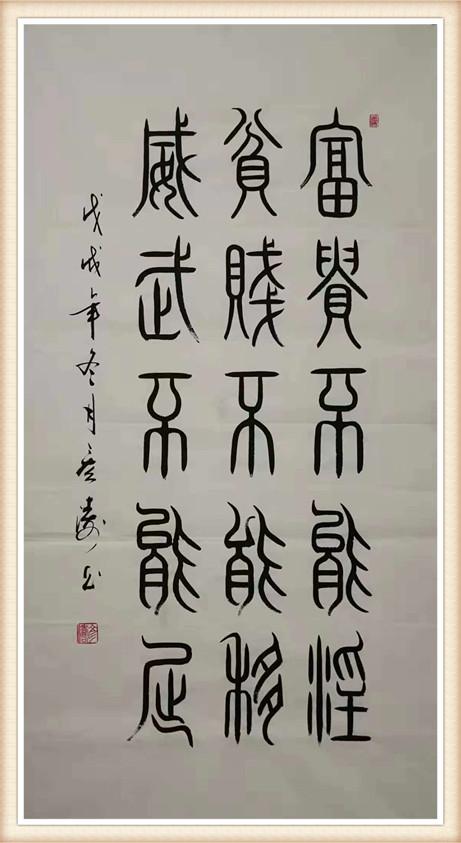 富貴不能淫
貧賤不能移
威武不能屈
戊戌年冬月